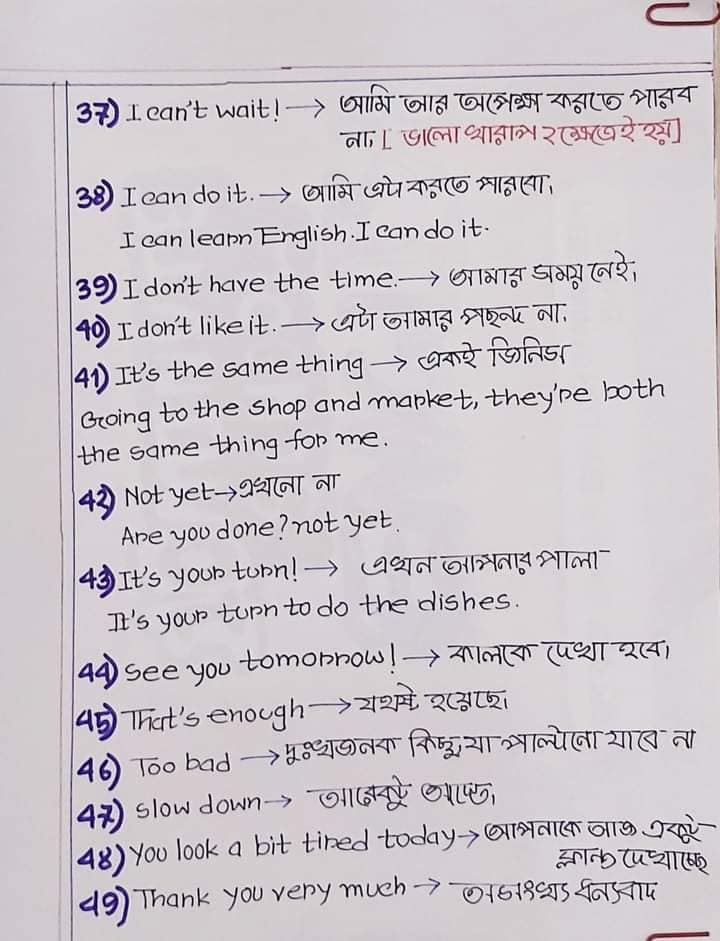 37) I can't wait! → আমি আর অপেক্ষা করতে পারব
না, [ ভালো খারাপ ২ ক্ষেত্রেই হয়]
38) I can do it. → আমি এটা করতে পারবো,
I can learn English. I can do it.
39) I don't have the time. → আমার সময় নেই,
40) I don't like it. → এটা আমার পছন্দ না,
41) It's the same thing → একই জিনিস
Going to the shop and market, they're both
the same thing for me.
42) Not yet → এখনো না
Are you done? not yet.
43) It's your turn! → এখন আপনার পালা
It's your turn to do the dishes.
44) See you tomorrow! → কালকে দেখা হবে,
45) That's enough → যথেষ্ট হয়েছে,
46) Too bad → দুঃখজনক কিছু, যা পাল্টানো যাবে না
47) Slow down → আরেকটু আস্তে,
48) You look a bit tired today → আপনাকে আজ একটু
ক্লান্ত দেখাচ্ছে
49) Thank you very much → অসংখ্য ধন্যবাদ